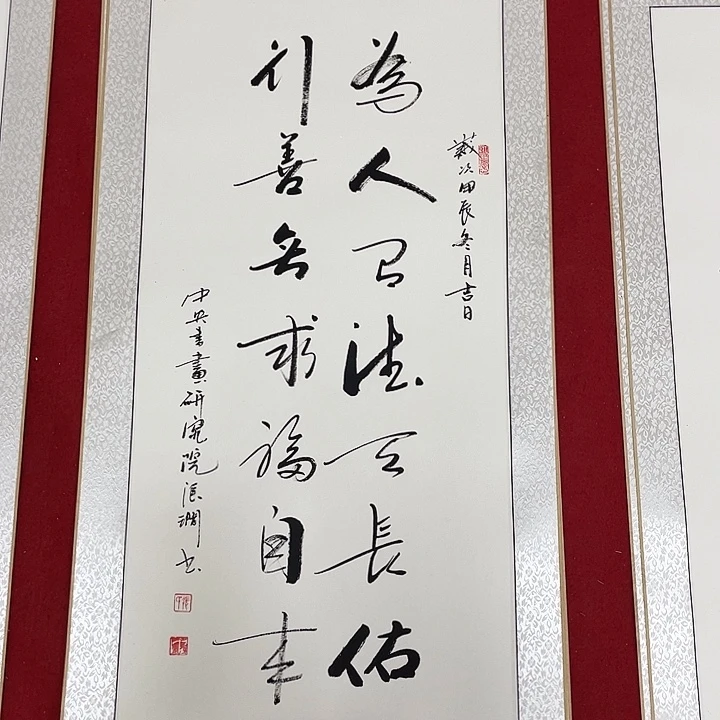 歲次甲辰冬月吉日
為人有德天長佑
行善無求福自來
中央書畫研究院張 書